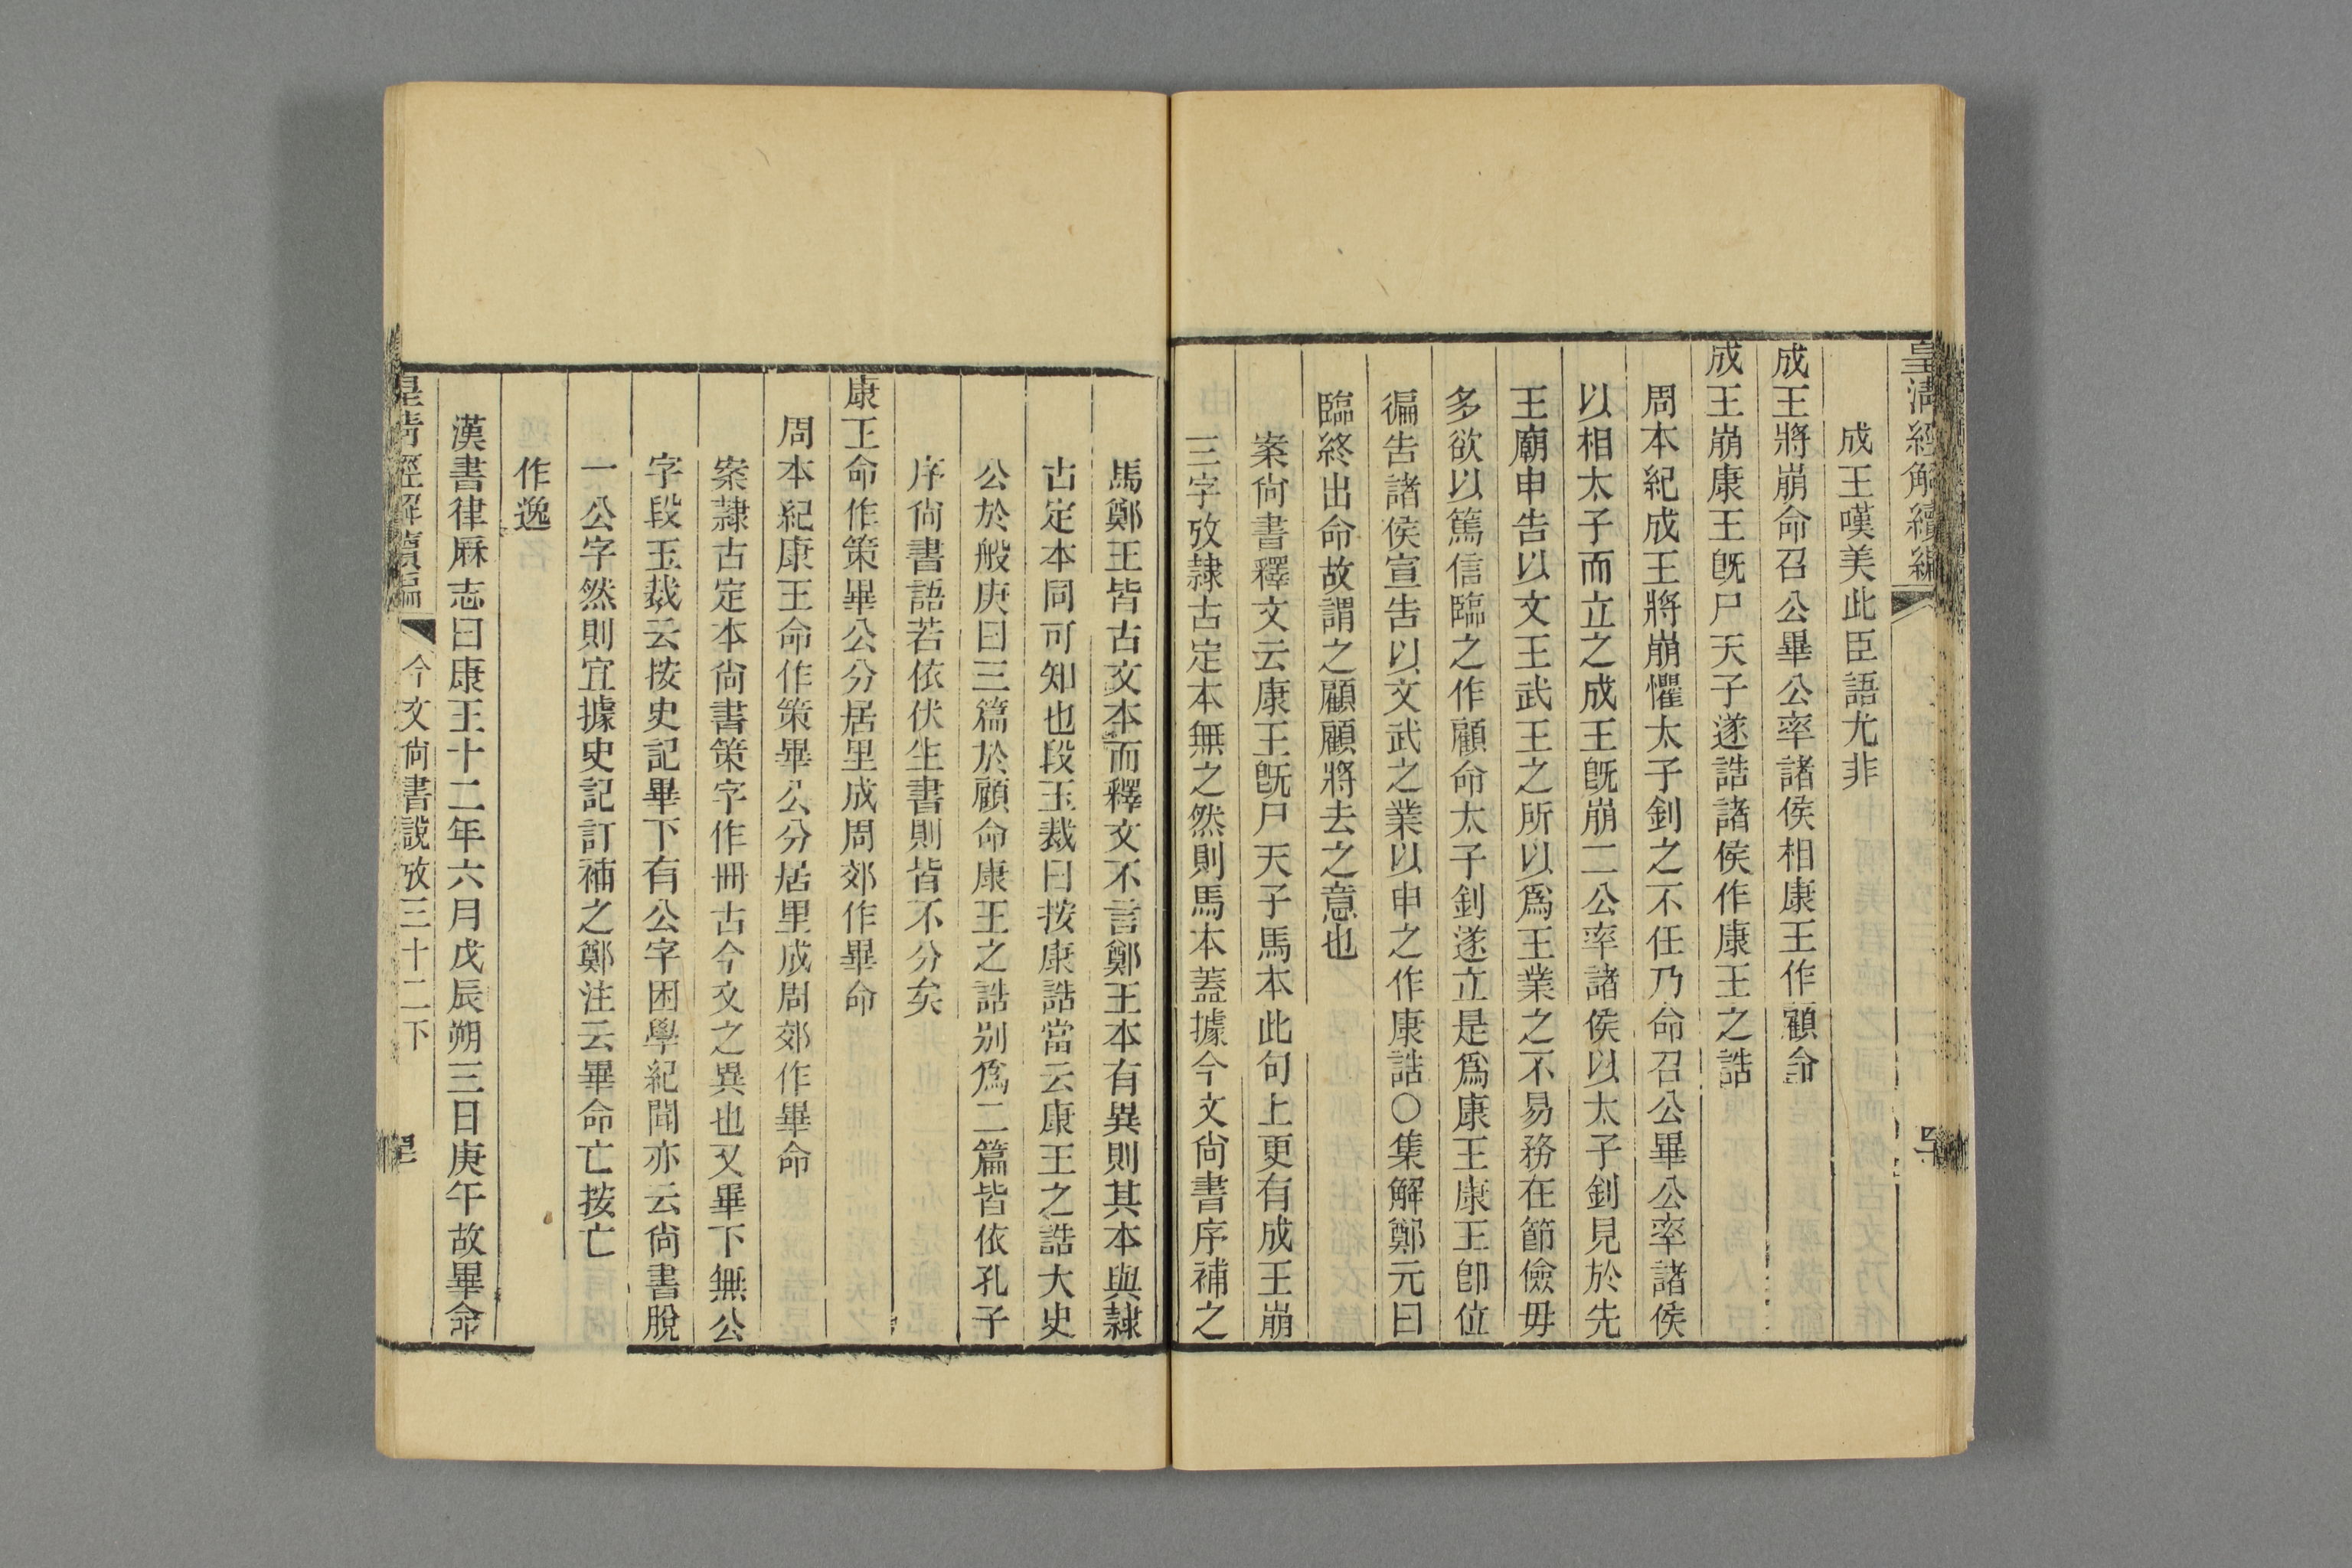 皇清經解續編
成王嘆美此臣語尤非
成王將崩命召公畢公率諸侯相康王作顧命
成王崩康王旣尸天子遂誥諸侯作康王之誥
周本紀成王將崩懼太子釗之不任乃命召公畢公率諸侯
以相太子而立之成王旣崩二公率諸侯以太子釗見於先
王廟申告以文王武王之所以爲王業之不易務在節儉毋
多欲以篤信臨之作顧命太子釗遂立是爲康王康王卽位
徧告諸侯宣告以文武之業以申之作康誥○集解鄭元曰
臨終出命故謂之顧顧將去之意也
案尙書釋文云康王旣尸天子馬本此句上更有成王崩
三字攷隸古定本無之然則馬本蓋據今文尙書序補之
馬鄭王皆古文本而釋文不言鄭王本有異則其本與隸
古定本同可知也段玉裁曰按康誥當云康王之誥大史
公於般庚曰三篇於顧命康王之誥別爲二篇皆依孔子
序尙書語若依伏生書則皆不分矣
康王命作策畢公分居里成周郊作畢命
周本紀康王命作策畢公分居里成周郊作畢命
案隸古定本尙書策字作冊古今文之異也又畢下無公
字段玉裁云按史記畢下有公字困學紀聞亦云尙書脫
一公字然則宜據史記訂補之鄭注云畢命亡按亡
作逸
漢書律厤志曰康王十二年六月戊辰朔三日庚午故畢命
皇清經解續編 今文尙書說攷三十二下